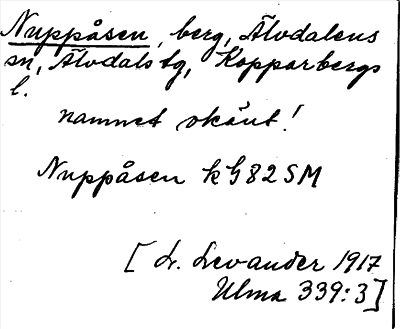 Nuppåsen, berg, Älvdalens
sn, Älvdals tg, Kopparbergs
l.
namnet okänt!
Nuppåsen k G 82 SM
[L. Levander 1917
Ulma 339:3]